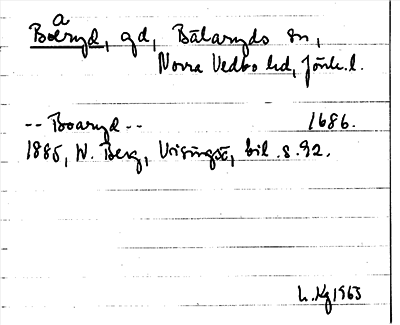 Boaryd, gd, Bälaryds sn,
Norra Vedbo hd, Jönk. l.
-- Boaryd -- 1686.
1885, W. Berg, Visingsö, bil. s. 92.
L. Kg 1963